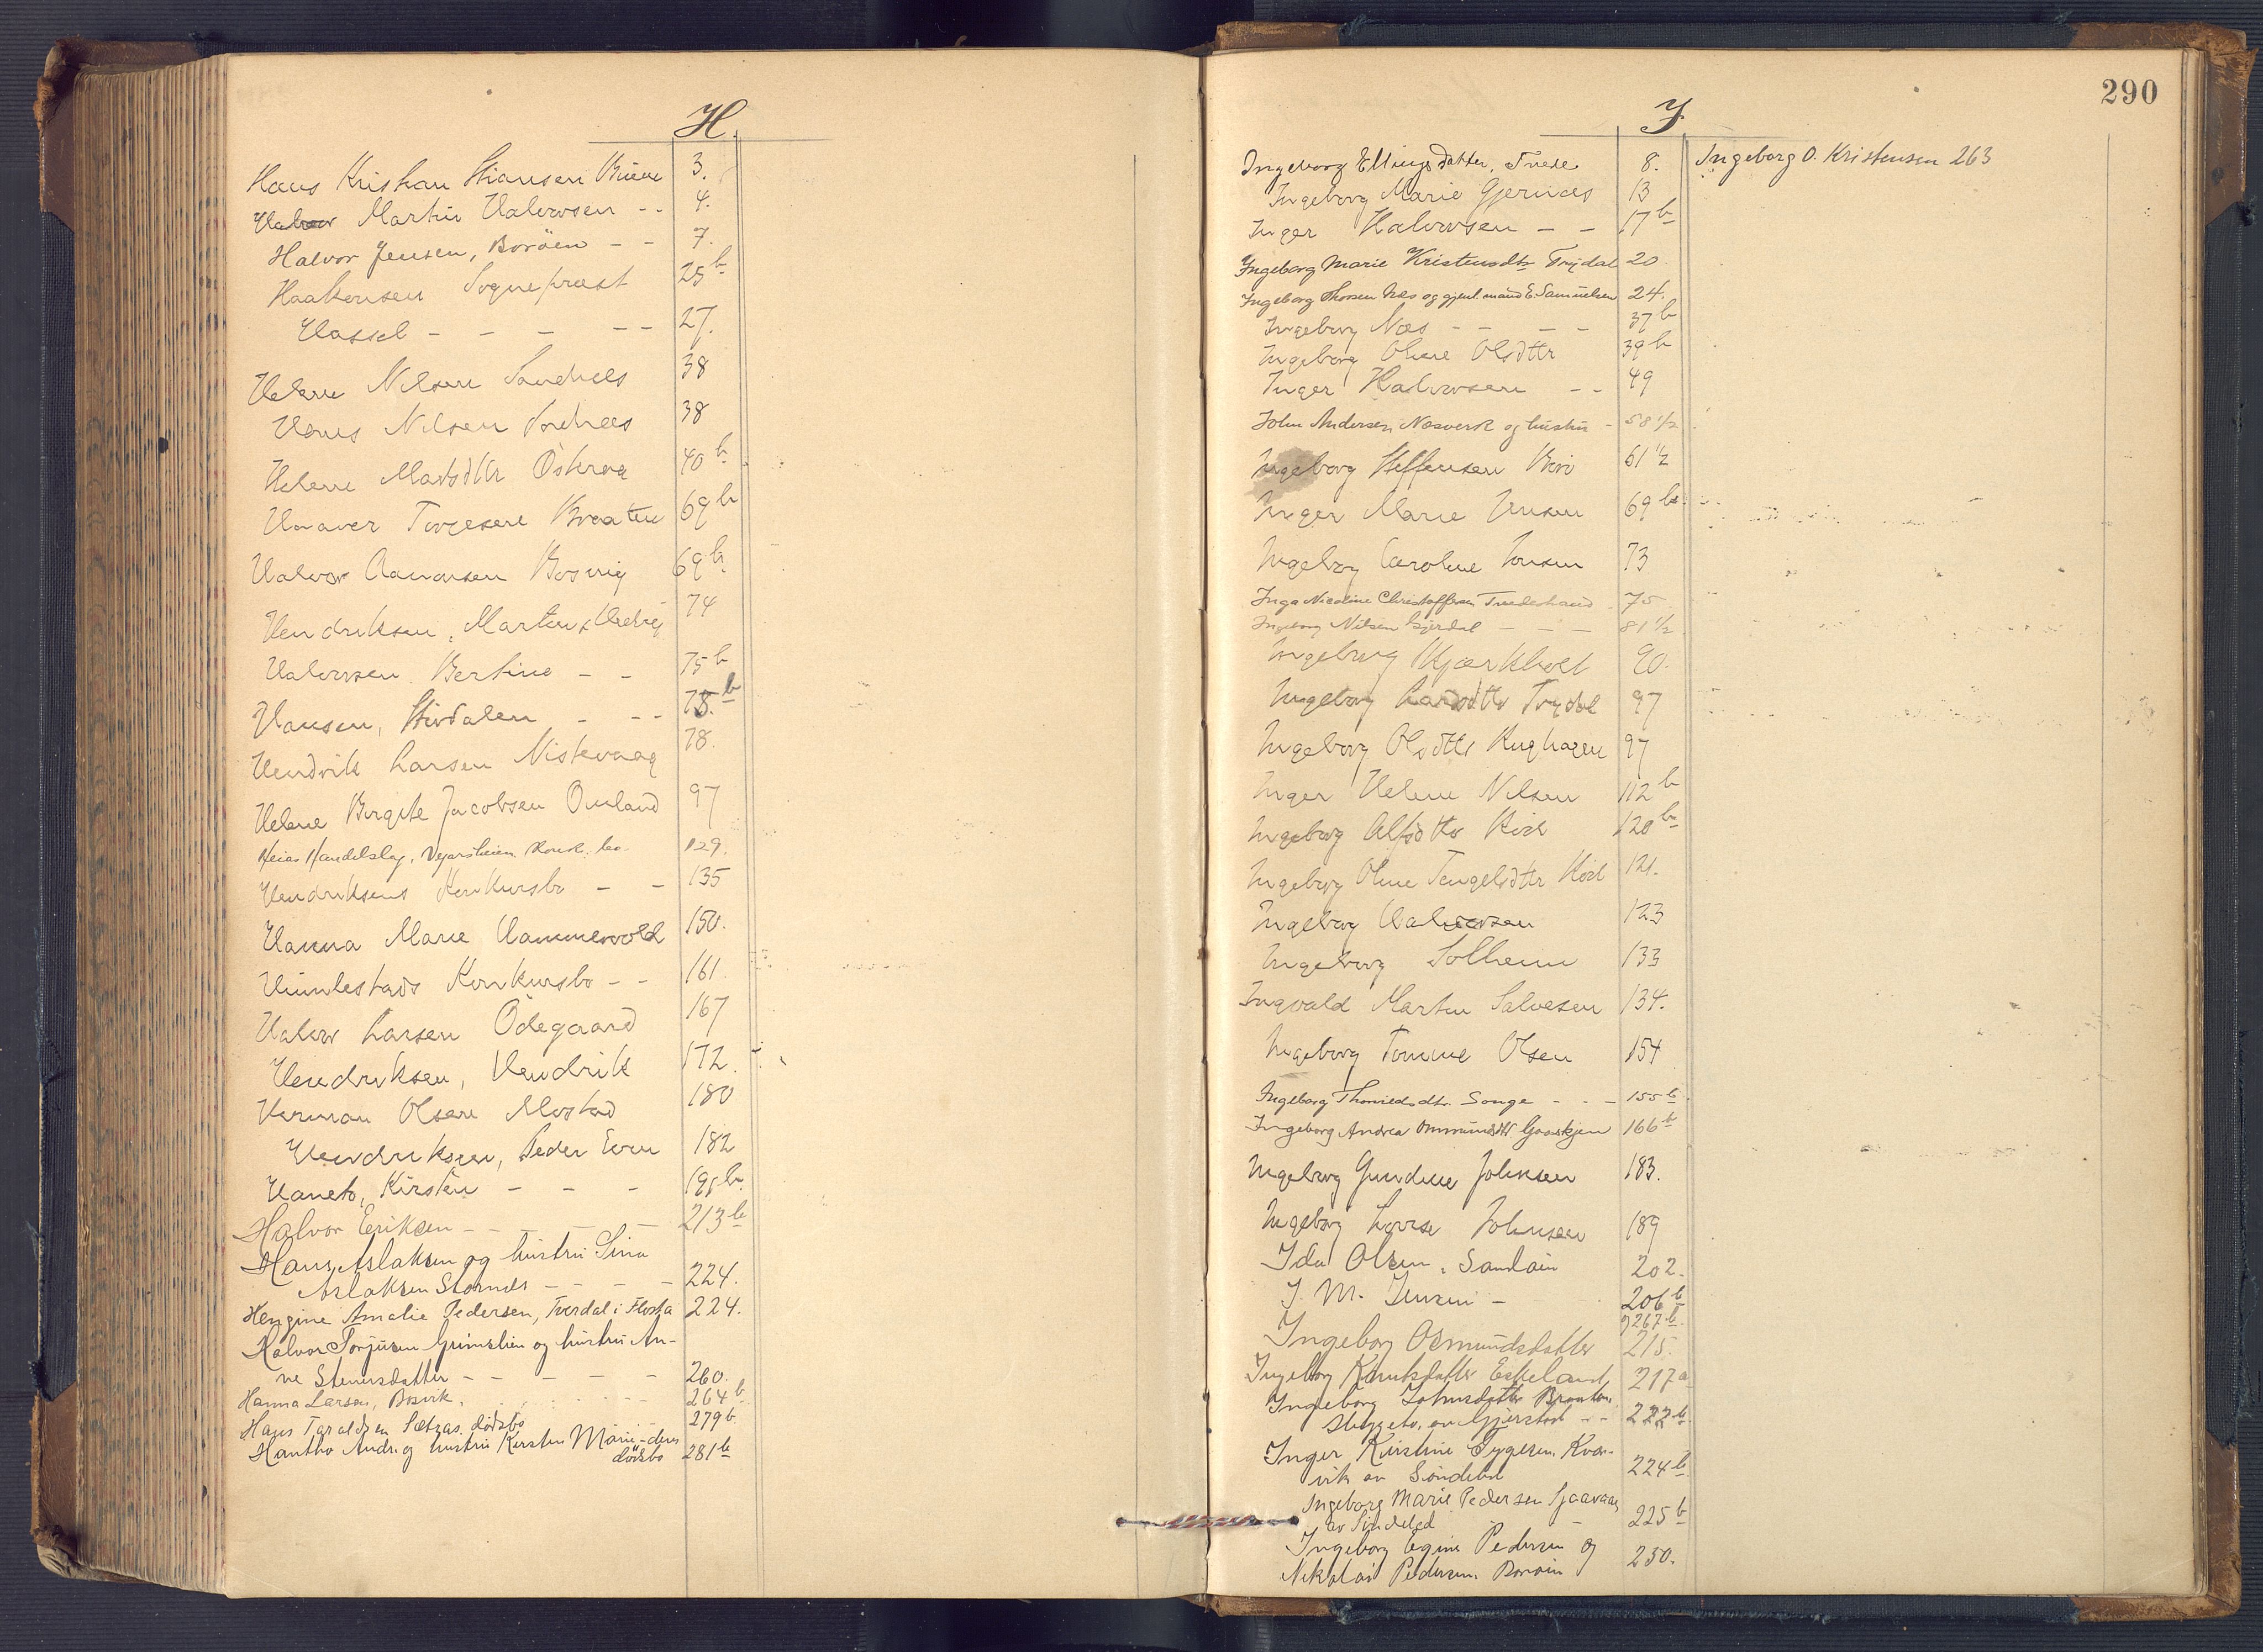 H.
Hans Kristian Stiansen 3.
Halvor Martin Halvorsen - - 4.
Halvor Jensen, Borøen - - 7.
Haakensen Sogneprest 25 b
Hassel - - - - - 27.
Helene Nilsen Sandnes 38
Hans Nilsen Sandnes 38
Helene Madsdtr Østeraa 40 b
Haaver Torgesen Braaten 69 b
Halvor Aanonsen Bosvig 69 b.
Hendriksen, Martin & Hedvig 74
Halvorsen Bertine - - 75 b
Hansen, Stivdalen - - - 78. b
Hendrik Larsen Niskevaag 78.
Helene Birgite Jacobsen Omland 97
Heias Handelslag, Vegarsheien. Konk. bo. 129.
Hendriksens Konkursbo - - 135
Hanna Marie Hammervold 150.
Humlestads Konkursbo - - 161.
Halvor Larsen Ødegaard 167
Hendriksen, Hendrik 172.
Herman Olsen Mostad 180
Hendriksen, Peder Even 182
Haneto, Kirsten - - - 195 b.
Halvor Eriksen - - - - 213 b
Hans Aslaksen og hustru Sina
Aslaksen Stornes - - - - 224.
Hengine Amalie Pedersen, Tverdal i Flosta 224.
Halvor Torjusen Grimslien og hustru An-
ne Stenersdatter - - - - - 260.
Hanna Larsen, Bosvik. 264 b
Hans Taraldsen Sætras dødsbo 279 b.
Hantho Andr. og hustru Kirsten Marie - deres
dødsbo 281 b
290
I
Ingeborg Ellingsdatter, 8.
Ingeborg O. Kristensen 263
Ingeborg Marie Gjernæs 13
Inger Halvorsen - - 17 b
Ingeborg Marie Kristensdtr Trydal 20
Ingeborg Thorsen Næs og gjenl. mand E. Samuelsen 24.
Ingeborg Næs - - - - 37 b
Ingeborg Oline Olsdttr 39 b
Inger Halvorsen - - 49
John Andersen Næsverk og hustru - 58 1/2
Ingeborg Steffensen Bori 61 1/2
Inger Marie Jensen 69 b.
Ingeborg Caroline Jonsen 73
Inga Nicoline Christoffersen Tvedestrand 75
Ingeborg Nilsen Gjerdal - - - 81 1/2
Ingeborg Skjærkholt 90.
Ingeborg Larsdttr Trydal 97
Ingeborg Olsdttr Kughagen 97
Inger Helene Nilsen 112 b
Ingeborg Alfsdttr 120 b
Ingeborg Oline Tengelsdttr 121.
Ingeborg Halvorsen 123
Ingeborg Solheim 133
Ingvald Martin Salvesen 134.
Ingeborg Tomine Olsen 154
Ingeborg Thomedsdtr. Songe - - - 155 b
Ingeborg Andrea Ommundsdttr Gaaskjen 166 b
Ingeborg Gundine Johnsen 183.
Ingeborg Lovise Johnsen 189
Ida Olsen, Sandøen 202.
J. M. Jensen - 206 b
og 267 b.
Ingeborg Osmundsdatter 215.
Ingeborg Knutsdatter Eskeland 217 a
Ingeborg Johnsdatter Braaten
av Gjerstad - - 222 b.
Inger Kirstine Tygesen Kva-
vik av Søndeled 224 b.
Ingeborg Marie Pedersen Sjaavaag
av Søndeled - 225 b
Ingeborg Egine Pedersen og
Nikolai Pedersen. Borøen 230.